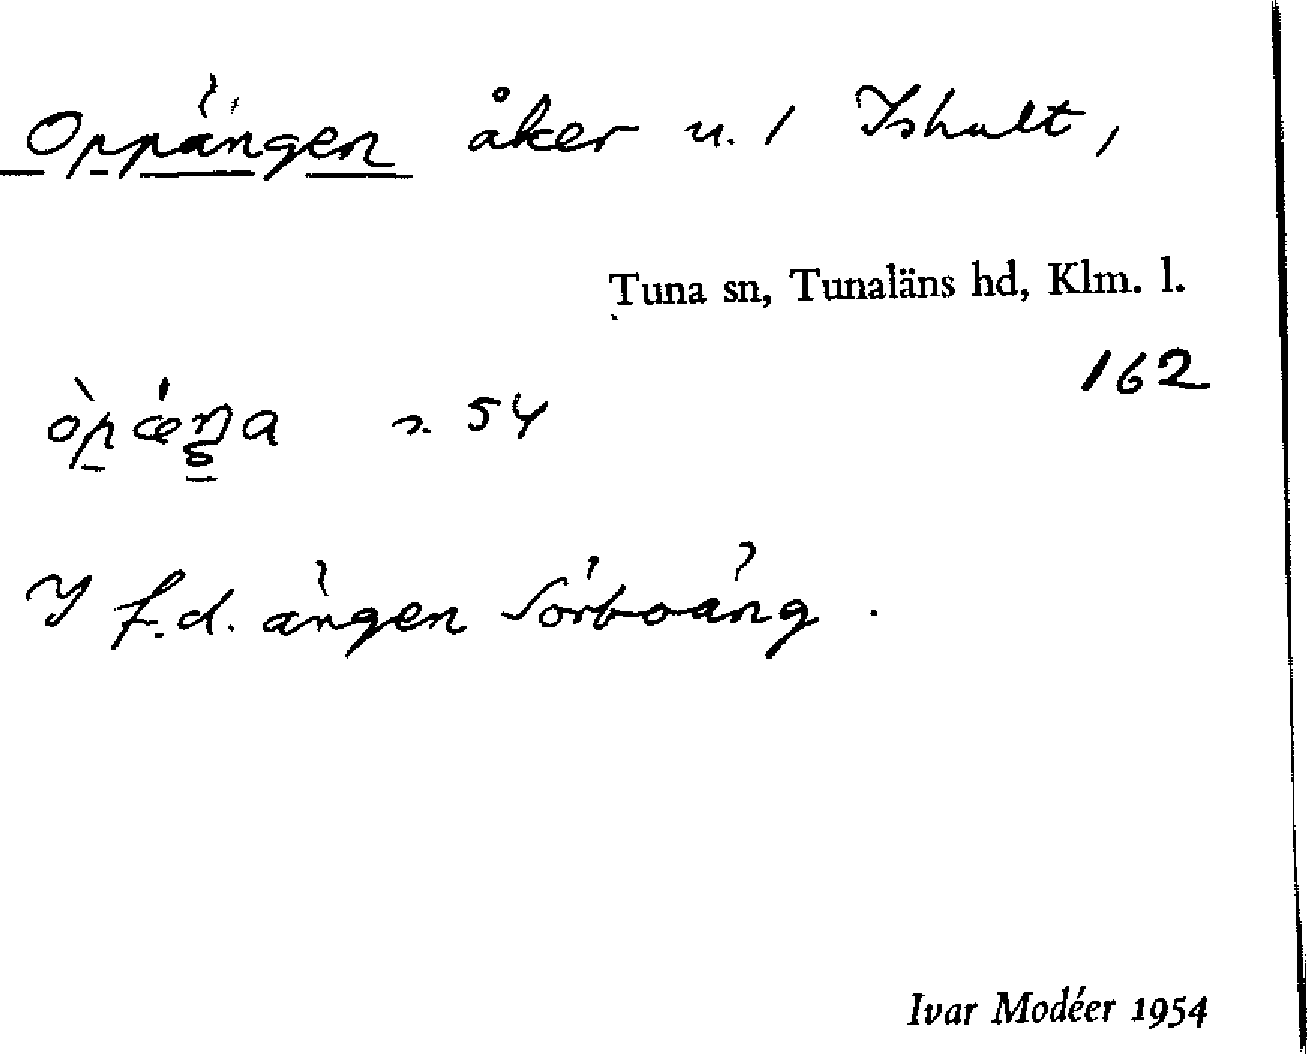 Oppängen åker u. 1 Ishult,
Tuna sn, Tunaläns hd, Klm. l.
162
òpǽŋa s. 54
I f.d. ängen Sörboäng.
Ivar Modéer 1954